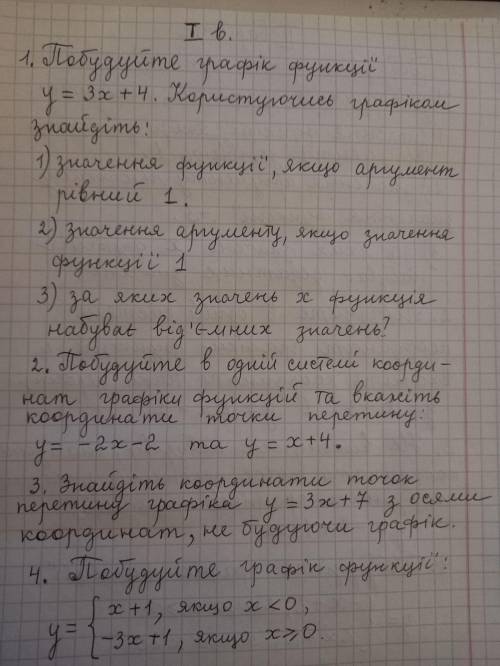 I в.
1. Побудуйте графік функції
y = 3x + 4. Користуючись графіком
знайдіть:
1) значення функції, якщо аргумент
рівний 1.
2) значення аргументу, якщо значення
функції 1
3) за яких значень x функція
набуває від'ємних значень?
2. Побудуйте в одній системі коорди-
нат графіки функцій та вкажіть
координати точки перетину:
y = -2x-2 та y = x+4.
3. Знайдіть координати точок
перетину графіка y = 3x+7 з осями
координат, не будуючи графік.
4. Побудуйте графік функції:
y = { x+1, якщо x<0,
-3x+1, якщо x⩾0.